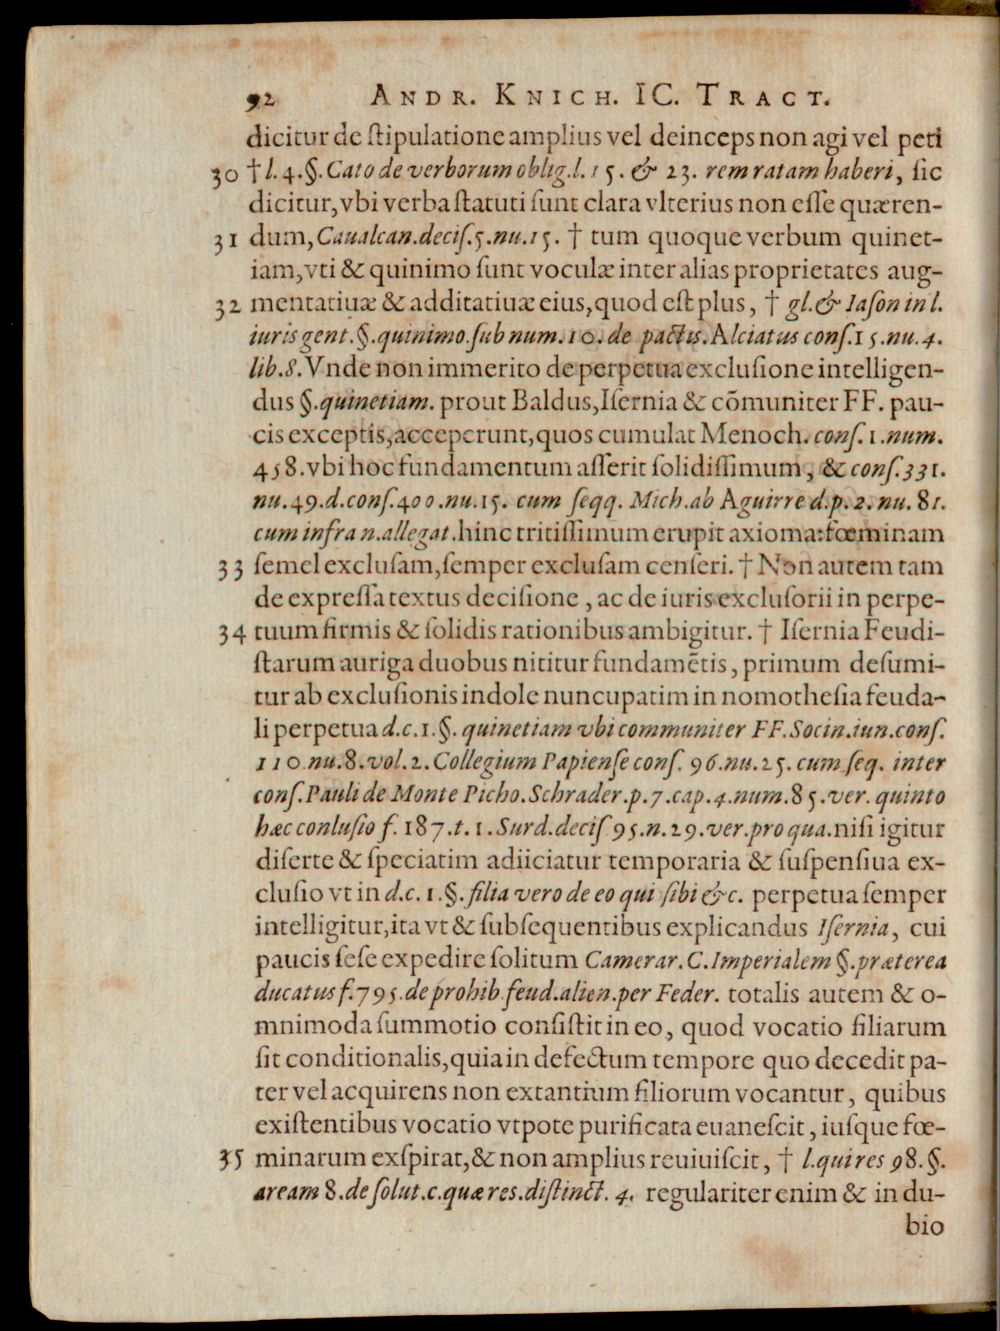 92 ANDR. KNICH. IC. TRACT.
dicitur de ſtipulatione amplius vel deinceps non agi vel peti
30 † l. 4. §. Cato de verborum oblig. l. 15. & 23. rem ratam haberi, ſic
dicitur, vbi verba ſtatuti ſunt clara vlterius non eſſe quæren-
31 dum, Caualcan. deciſ. 5. nu. 15. † tum quoque verbum quinet-
iam, vti & quinimo ſunt voculæ inter alias proprietates aug-
32 mentatiuæ & additatiuæ eius, quod eſt plus, † gl. & Iaſon in l.
iuris gent. §. quinimo. ſub num. 10. de pactis. Alciatus conſ. 15. nu. 4.
lib. 8. Vnde non immerito de perpetua excluſione intelligen-
dus §. quinetiam. prout Baldus, Iſernia & cõmuniter FF. pau-
cis exceptis, acceperunt, quos cumulat Menoch. conſ. 1. num.
458. vbi hoc fundamentum aſſerit ſolidiſſimum, & conſ. 331.
nu. 49. d. conſ. 400. nu. 15. cum ſeqq. Mich. ab Aguirre d. p. 2. nu. 81.
cum infra n. allegat. hinc tritiſſimum erupit axioma: fœminam
33 ſemel excluſam, ſemper excluſam cenſeri. † Non autem tam
de expreſſa textus deciſione, ac de iuris excluſorii in perpe-
34 tuum firmis & ſolidis rationibus ambigitur. † Iſernia Feudi-
ſtarum auriga duobus nititur fundamẽtis, primum deſumi-
tur ab excluſionis indole nuncupatim in nomotheſia feuda-
li perpetua d. c. 1. §. quinetiam vbi communiter FF. Socin. iun. conſ.
110. nu. 8. vol. 2. Collegium Papienſe conſ. 96. nu. 25. cum ſeq. inter
conſ. Pauli de Monte Picho. Schrader. p. 7. cap. 4. num. 85. ver. quinto
hæc concluſio f. 187. t. 1. Surd. deciſ 95. n. 29. ver. pro qua. niſi igitur
diſerte & ſpeciatim adiiciatur temporaria & ſuſpenſiua ex-
cluſio vt in d. c. 1. §. filia vero de eo qui ſibi &c. perpetua ſemper
intelligitur, ita vt & ſubſequentibus explicandus Iſernia, cui
paucis ſeſe expedire ſolitum Camerar. C. Imperialem §. præterea
ducatus f. 795. de prohib. feud. alien. per Feder. totalis autem & o-
mnimoda ſummotio conſiſtit in eo, quod vocatio filiarum
ſit conditionalis, quia in defectum tempore quo decedit pa-
ter vel acquirens non extantium filiorum vocantur, quibus
exiſtentibus vocatio vtpote purificata euaneſcit, iuſque fœ-
35 minarum exſpirat, & non amplius reuiuiſcit, † l. qui res 98. §.
aream 8. de ſolut. c. quæ res. diſtinct. 4. regulariter enim & in du-
bio